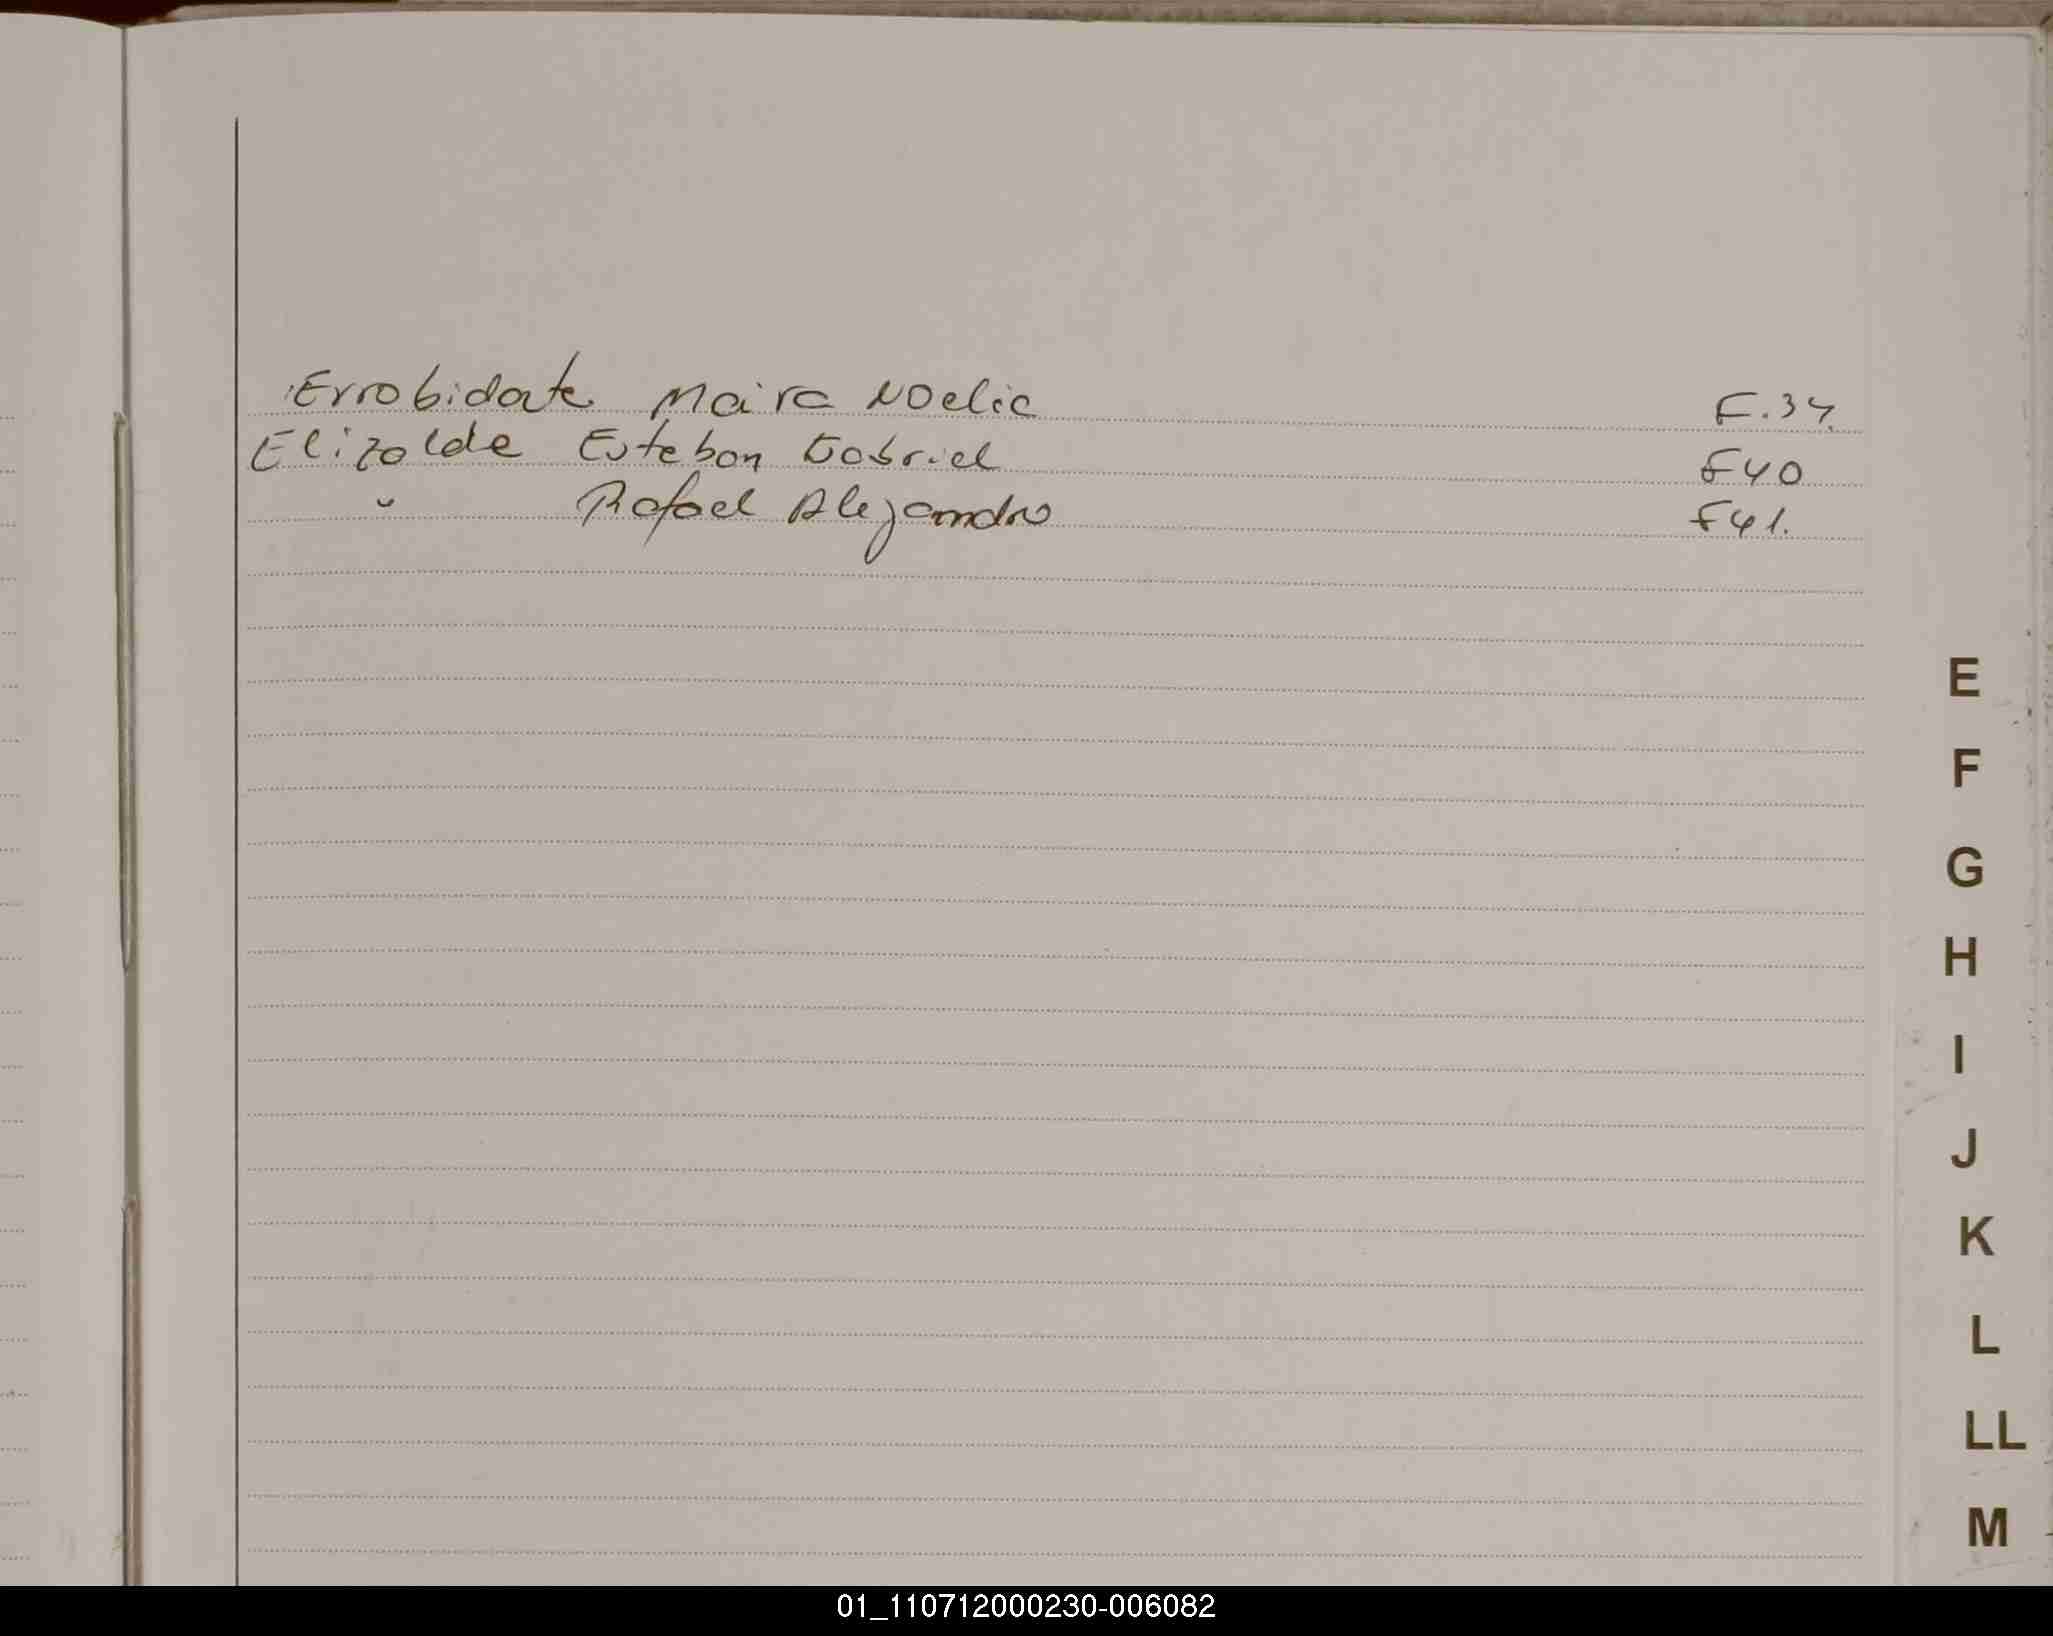 Errobidarte Maira Noelia F.34.
Elizalde Esteban Gabriel F40
" Rafael Alejandro F41.
E
F
G
H
I
J
K
L
LL
M
01_110712000230-006082